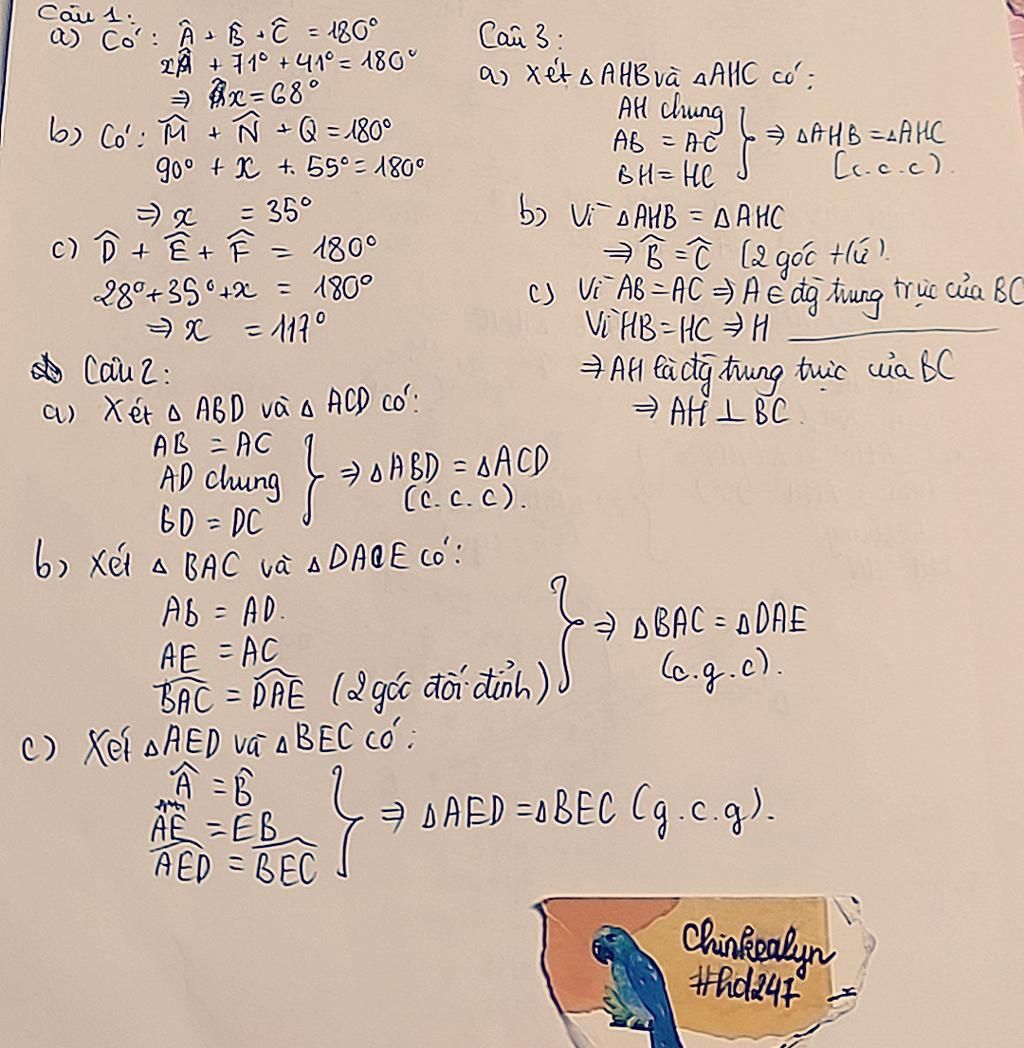 Câu 1:
a) Có: Â + B̂ + Ĉ = 180°
x + 71° + 41° = 180°
⇒ x = 68°
b) Có: M̂ + N̂ + Q = 180°
90° + x + 55° = 180°
⇒ x = 35°
c) D̂ + Ê + F̂ = 180°
28° + 35° + x = 180°
⇒ x = 117°
Câu 2:
a) Xét △ ABD và △ ACD có:
AB = AC
AD chung
BD = DC
⇒ △ABD = △ACD
(c.c.c).
b) Xét △ BAC và △DAE có:
AB = AD.
AE = AC
BAC = DAE (2 góc đối đỉnh)
⇒ △BAC = △DAE
(c.g.c).
c) Xét △AED và △BEC có:
Â = B̂
AE = EB
AED = BEC
⇒ △AED = △BEC (g.c.g).
Câu 3:
a) Xét △AHB và △AHC có:
AH chung
AB = AC
BH = HC
⇒ △AHB = △AHC
(c.c.c).
b) Vì △AHB = △AHC
⇒ B̂ = Ĉ (2 góc t/ứ).
c) Vì AB = AC ⇒ A ∈ đg trung trực của BC
Vì HB = HC ⇒ H
⇒ AH là đg trung trực của BC
⇒ AH ⊥ BC.
Chinkealyn
#hd247